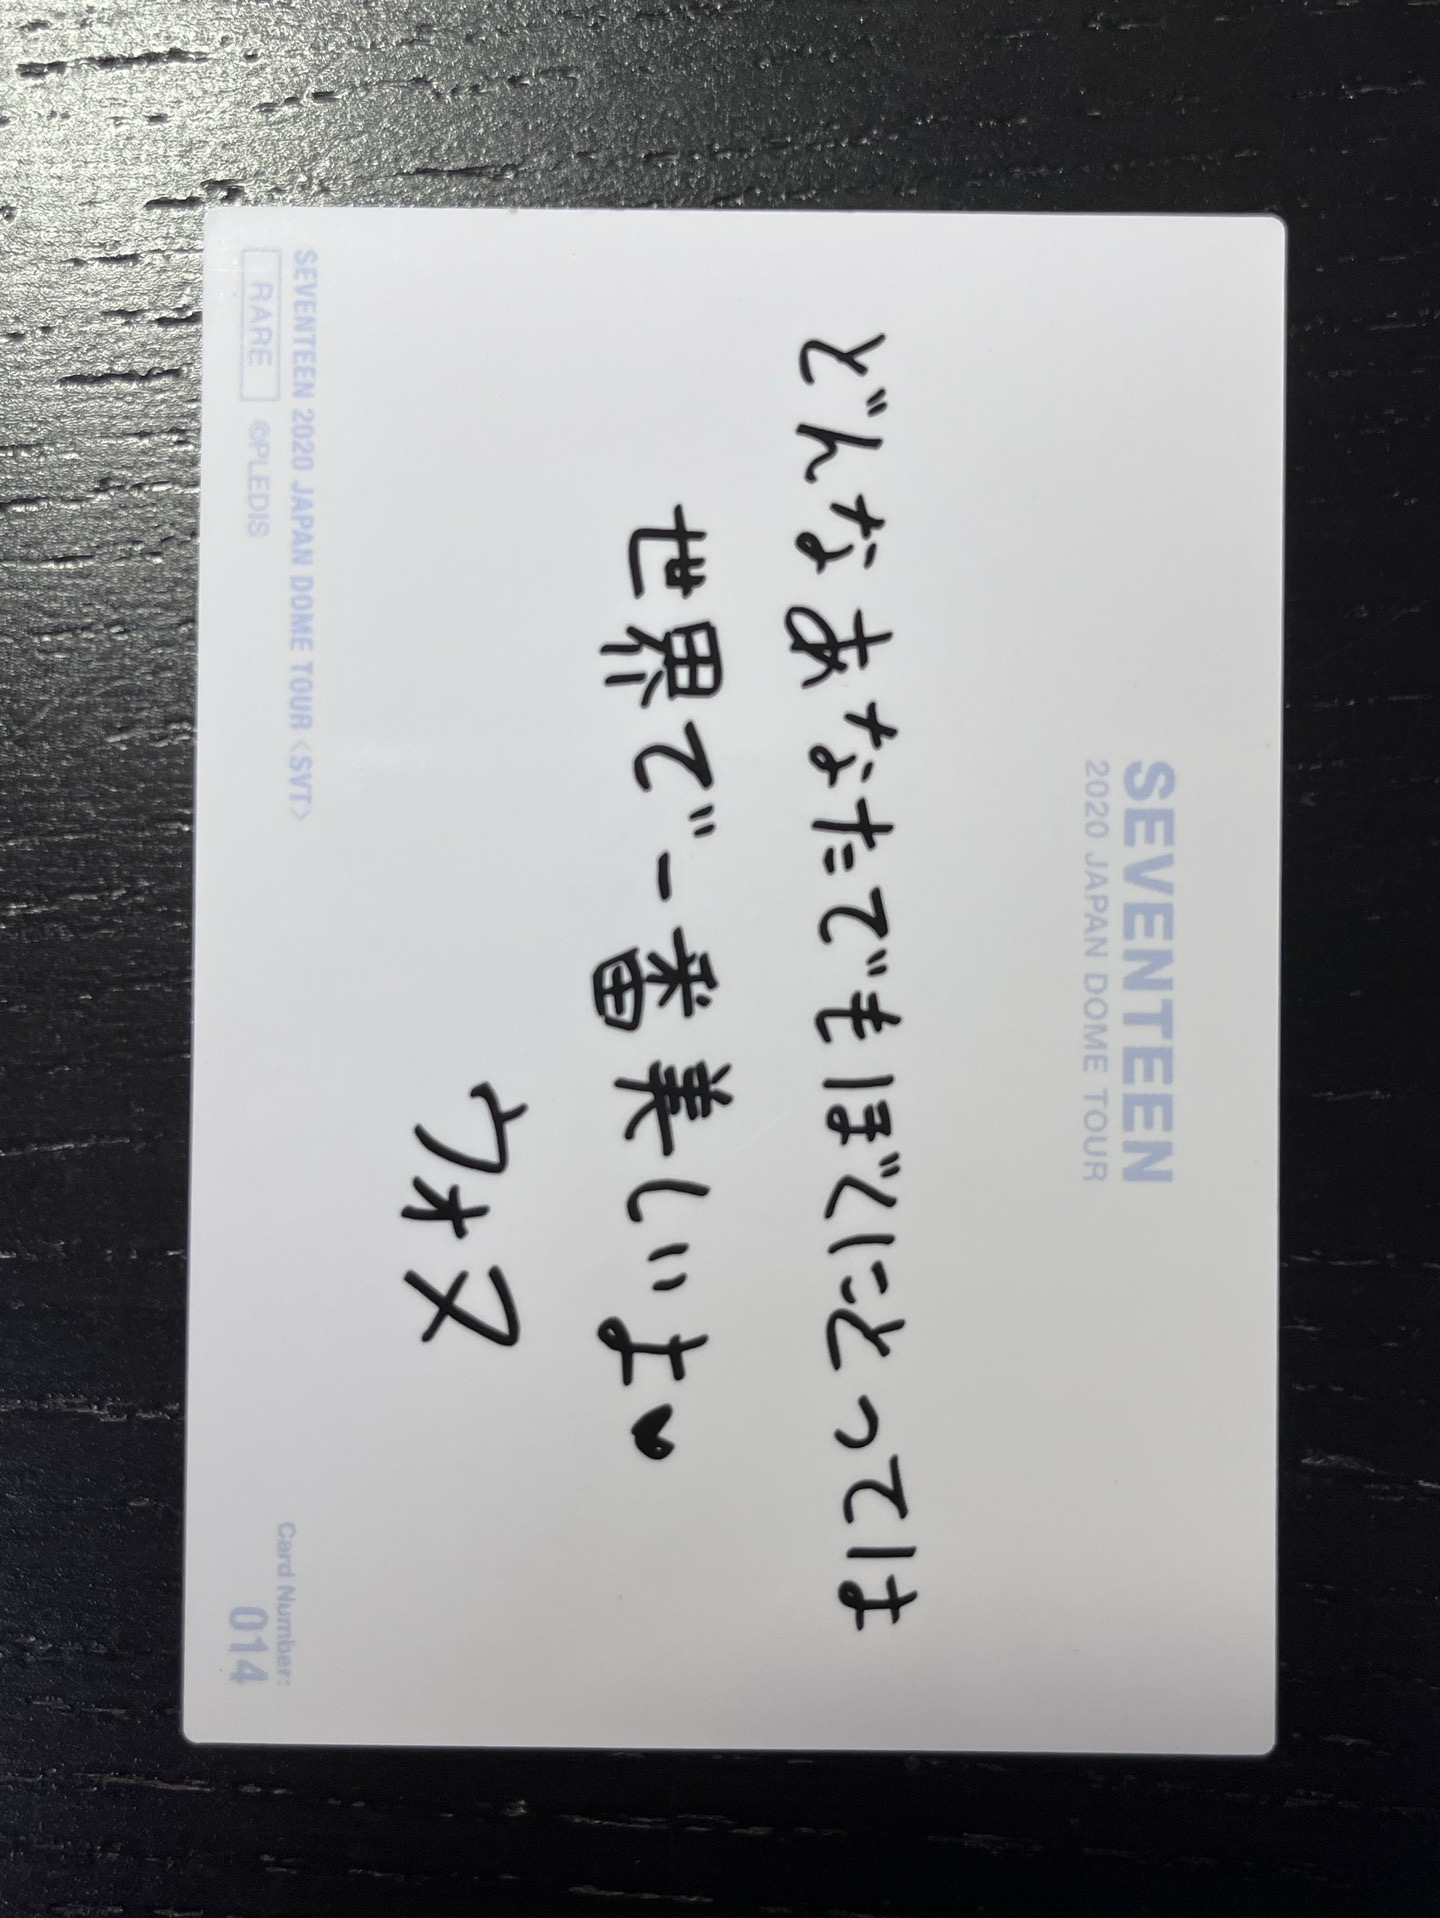 SEVENTEEN
2020 JAPAN DOME TOUR
どんなあなたでもぼくにとっては
世界で一番美しいよ♥
ウォヌ
SEVENTEEN 2020 JAPAN DOME TOUR <SVT>
RARE ©PLEDIS
Card Number:
014